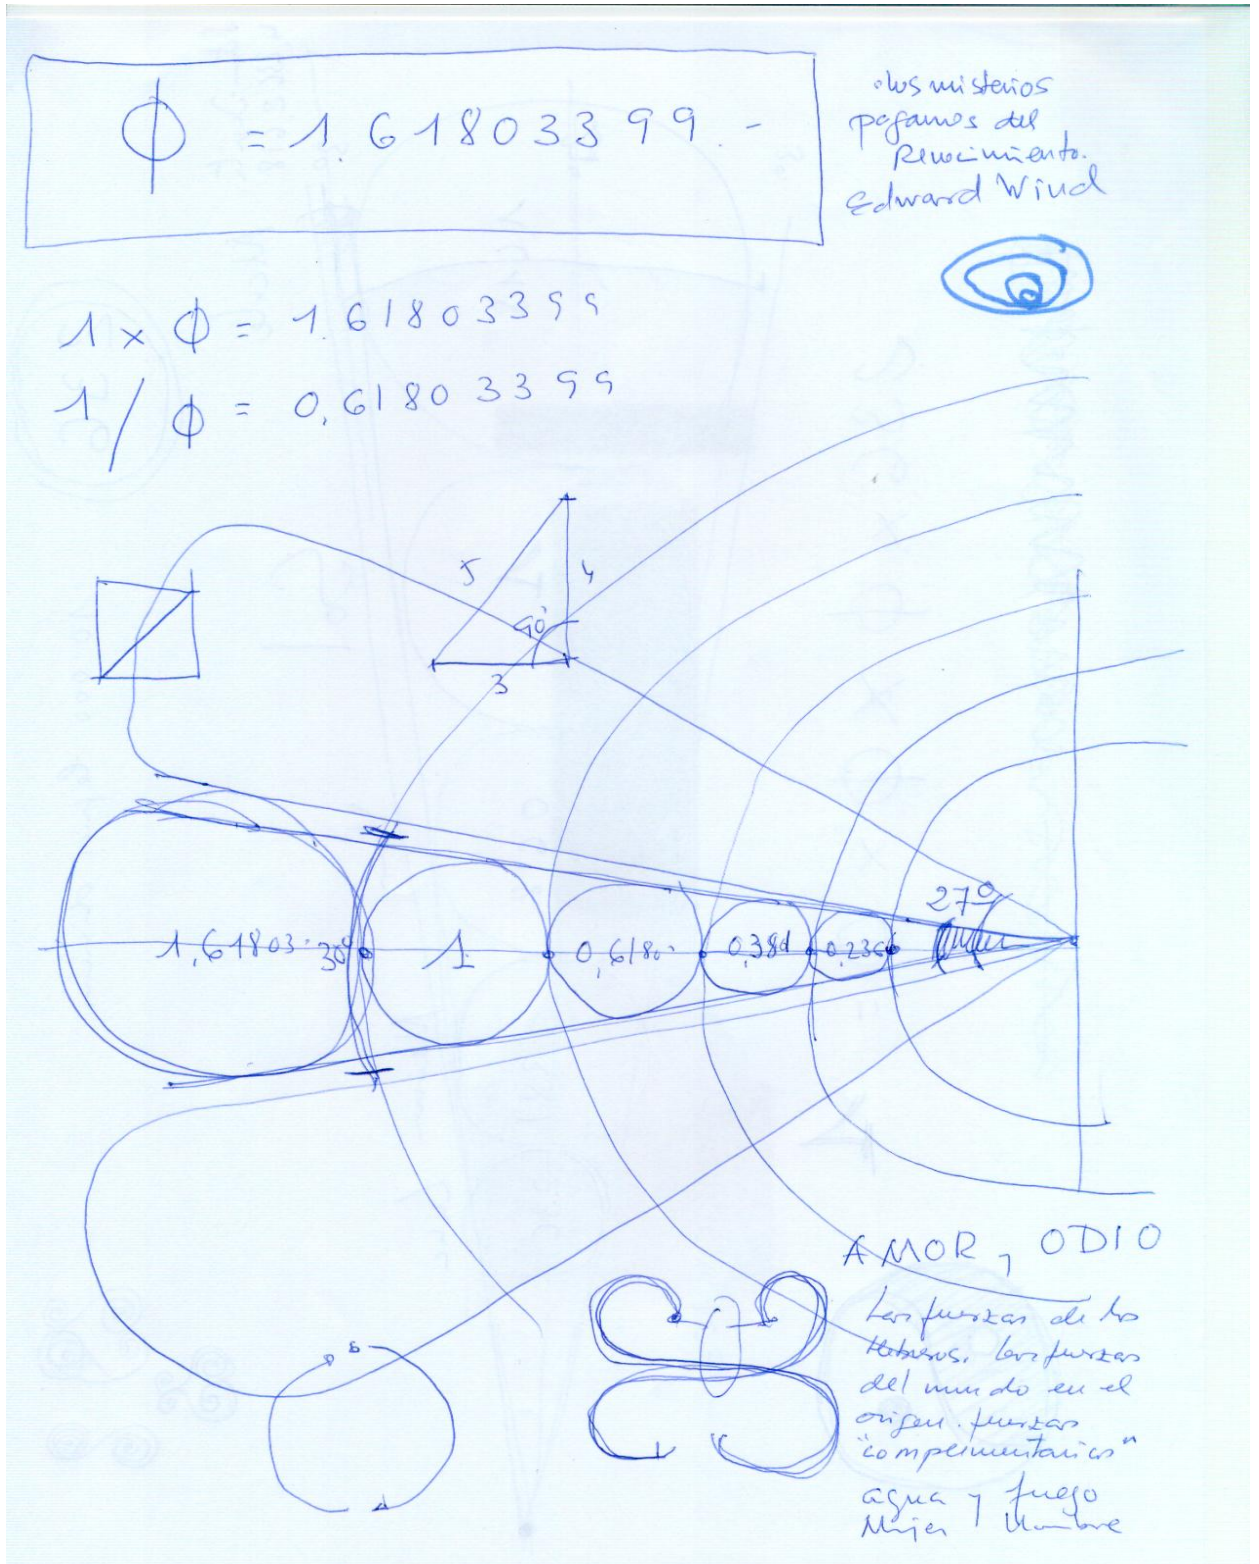 Φ = 1.61803399.-
.los misterios
paganos del
Renacimiento.
Edward Wind
1 x Φ = 1.61803399
1 / Φ = 0,61803399
5
4
90°
3
27º
1,61803.
30º
1
0,6180.
0,381
0,236
AMOR, ODIO
Las fuerzas de los
las fuerzas
del mundo en el
origen. fuerzas
"complementarias"
agua y fuego
Mujer Hombre